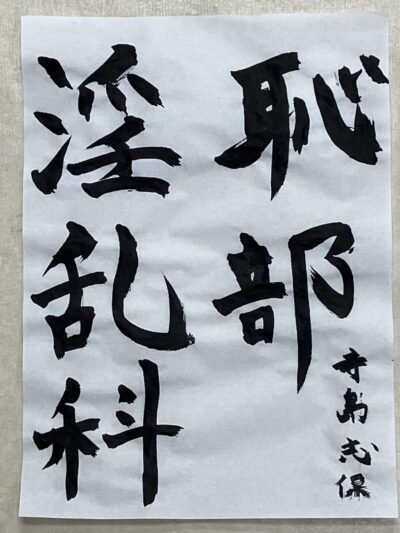 恥部
淫乱科
寺島志保